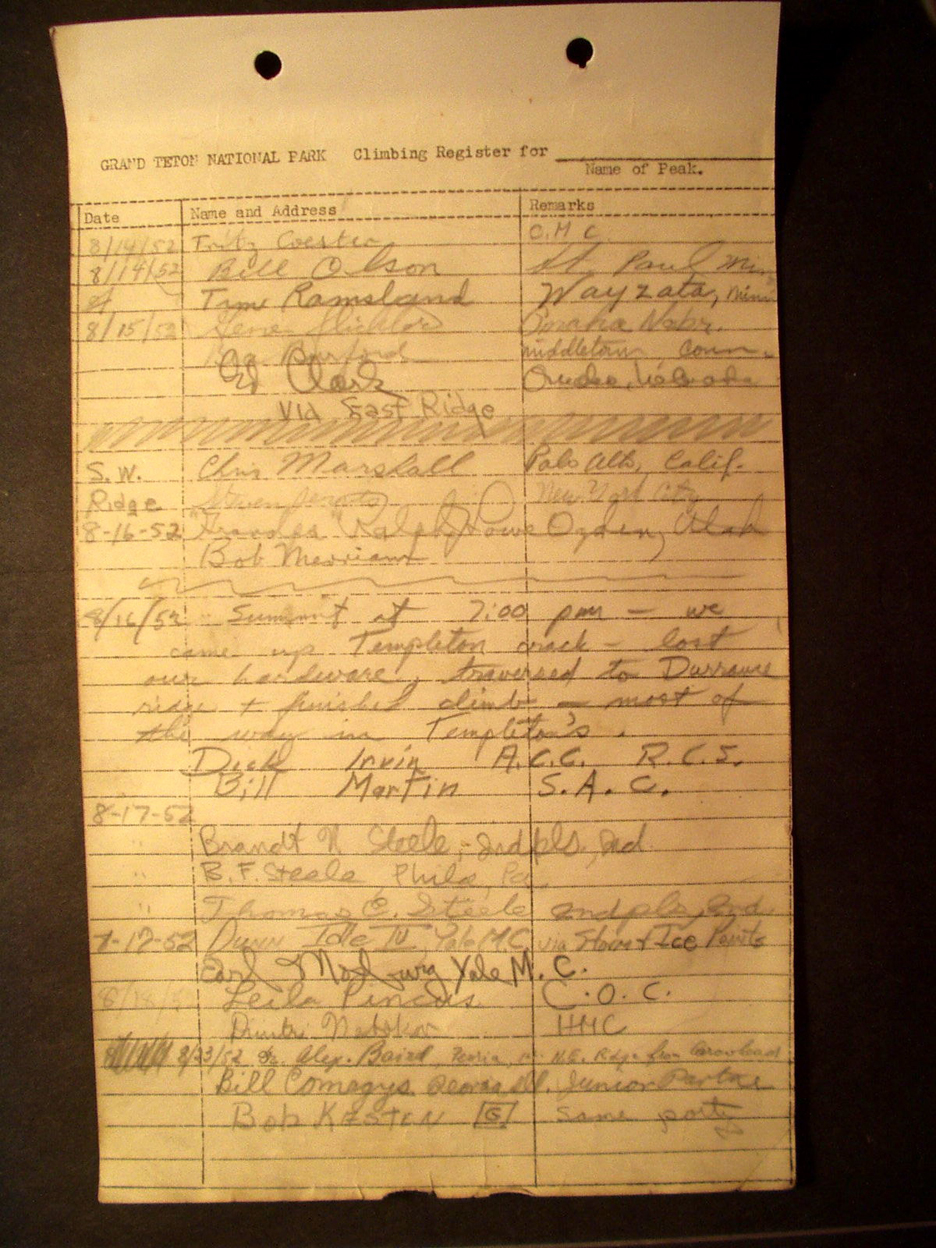 GRAND TETON NATIONAL PARK Climbing Register for
Name of Peak.
Date Name and Address Remarks
8/14/52 Fritz Coester C.M.C.
8/14/52 Bill Olson St. Paul Mi
Ramsland Wayzata, Minn
8/15/52 Gene Omaha Nebr.
Burford middletown, conn.
Ed Clark
via East Ridge
S.W. Chris Marshall Palo Alto, Calif.
Ridge New York City
8-16-52 Ralph Ogden, Utah
Bob Merriam
8/16/52 Summit at 7:00 pm - we
came up Templeton crack - lost
our hardware, traversed to Durrance
ridge + finished climb - most of
the way in Templeton's.
Dick Irvin A.C.C. R.C.S.
Bill Martin S.A.C.
8-17-52
Brandt N. Steele, Indpls, Ind.
" B.F. Steele Phila, Pa.
" Thomas C. Steele Indpls, Ind.
-17-52 IV, Yale M.C. via
Earl Yale M.C.
8/18/52 Leila Pincus C.O.C.
Dimitri Nabokov HMC
8/23/52 Alex. Baird, Peoria, N.E. Ridge from
Bill Comegys Peoria Ill. Junior Partner
Bob KESTEN G Same party